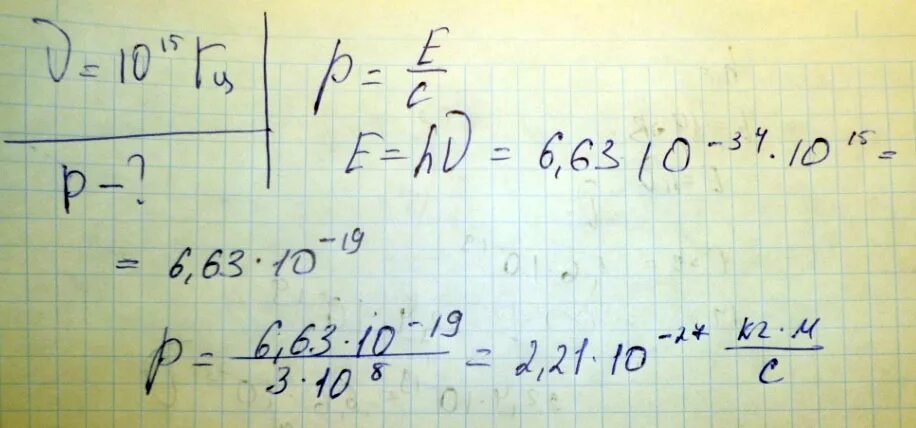 ν = 10¹⁵ Гц
p – ?
p = E/c
E = hν = 6,63 10⁻³⁴ · 10¹⁵ =
= 6,63 · 10⁻¹⁹
p = 6,63 · 10⁻¹⁹ / 3 · 10⁸ = 2,21 · 10⁻²⁷ кг · м / с